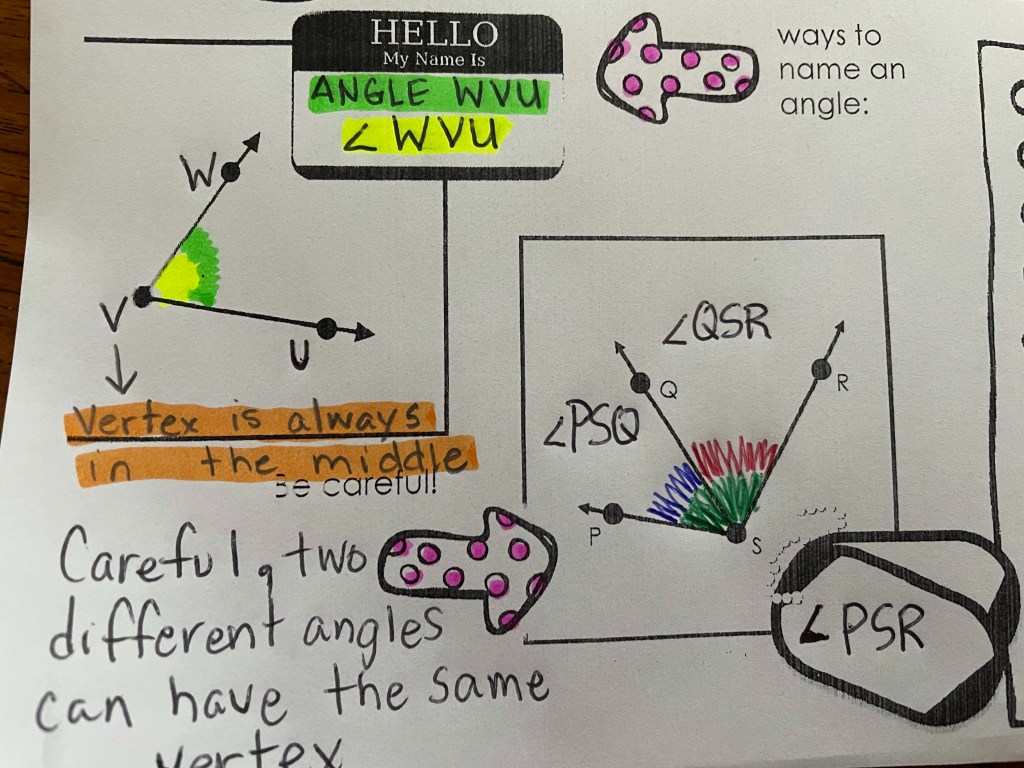 HELLO
My Name Is
ANGLE WVU
∠WVU
ways to
name an
angle:
W
V
U
Vertex is always
in the middle
Be careful!
Careful, two
different angles
can have the same
vertex
∠QSR
∠PSQ
Q
R
P
S
∠PSR